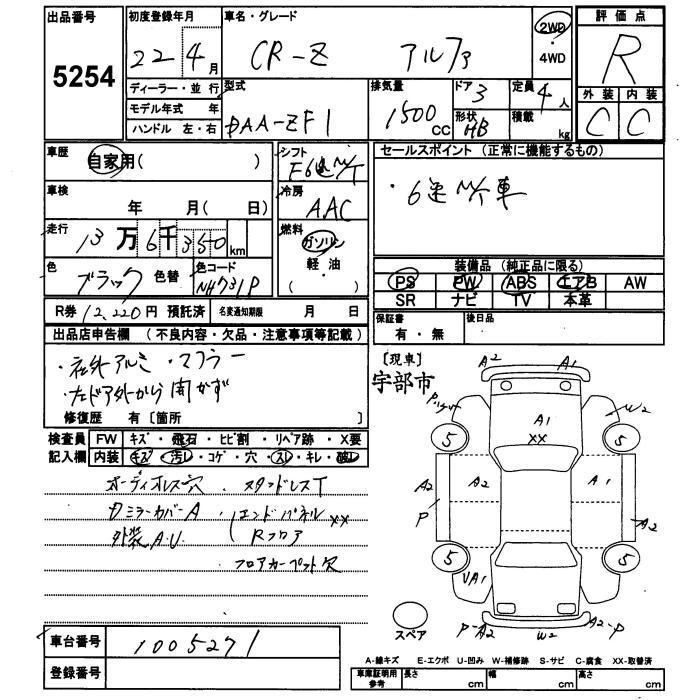 出品番号
5254
初度登録年月
22年4月
車名・グレード
CR-Z アルファ
2WD
・
4WD
評価点
R
外装 内装
C C
ディーラー・並行
モデル年式 年
ハンドル 左・右
型式
DAA-ZF1
排気量
1500
CC
ドア
3
形状
HB
定員
4人
積載
kg
車歴
自家用( )
車検
年 月( 日)
走行
13万6千350km
色
ブラック
色替
色コード
NH731P
シフト
F6速M/T
冷房
AAC
燃料
ガソリン
軽・油
( )
セールスポイント (正常に機能するもの)
・6速M/T車
装備品 (純正品に限る)
PS PW ABS エアB AW
SR ナビ TV 本革
保証書
有・無
後日品
R券 12,220円 預託済 名変通知期限 月 日
出品店申告欄 (不良内容・欠品・注意事項等記載)
・社外アルミ ・マフラー
・左ドア外から開かず
修復歴 有〔箇所 〕
検査員 FW キズ・飛石・ヒビ割・リペア跡・X要
記入欄 内装 キズ・汚レ・コゲ・穴・スレ・キレ・破レ
オーディオレス穴 ・スタッドレスT
ミラーカバーA ・エンドパネルXX
外装A.U Rフロア
フロアカーペット欠
車台番号 1005271
登録番号
[現車]
宇部市
A2 A1
W2
A1
XX
5 5
A2 A2 A1
P A2
5 5
UA1
P-A2 W2 A2-P
スペア
A-線キズ E-エクボ U-凹み W-補修跡 S-サビ C-腐食 XX-取替済
車庫証明用参考 長さ cm 幅 cm 高さ cm